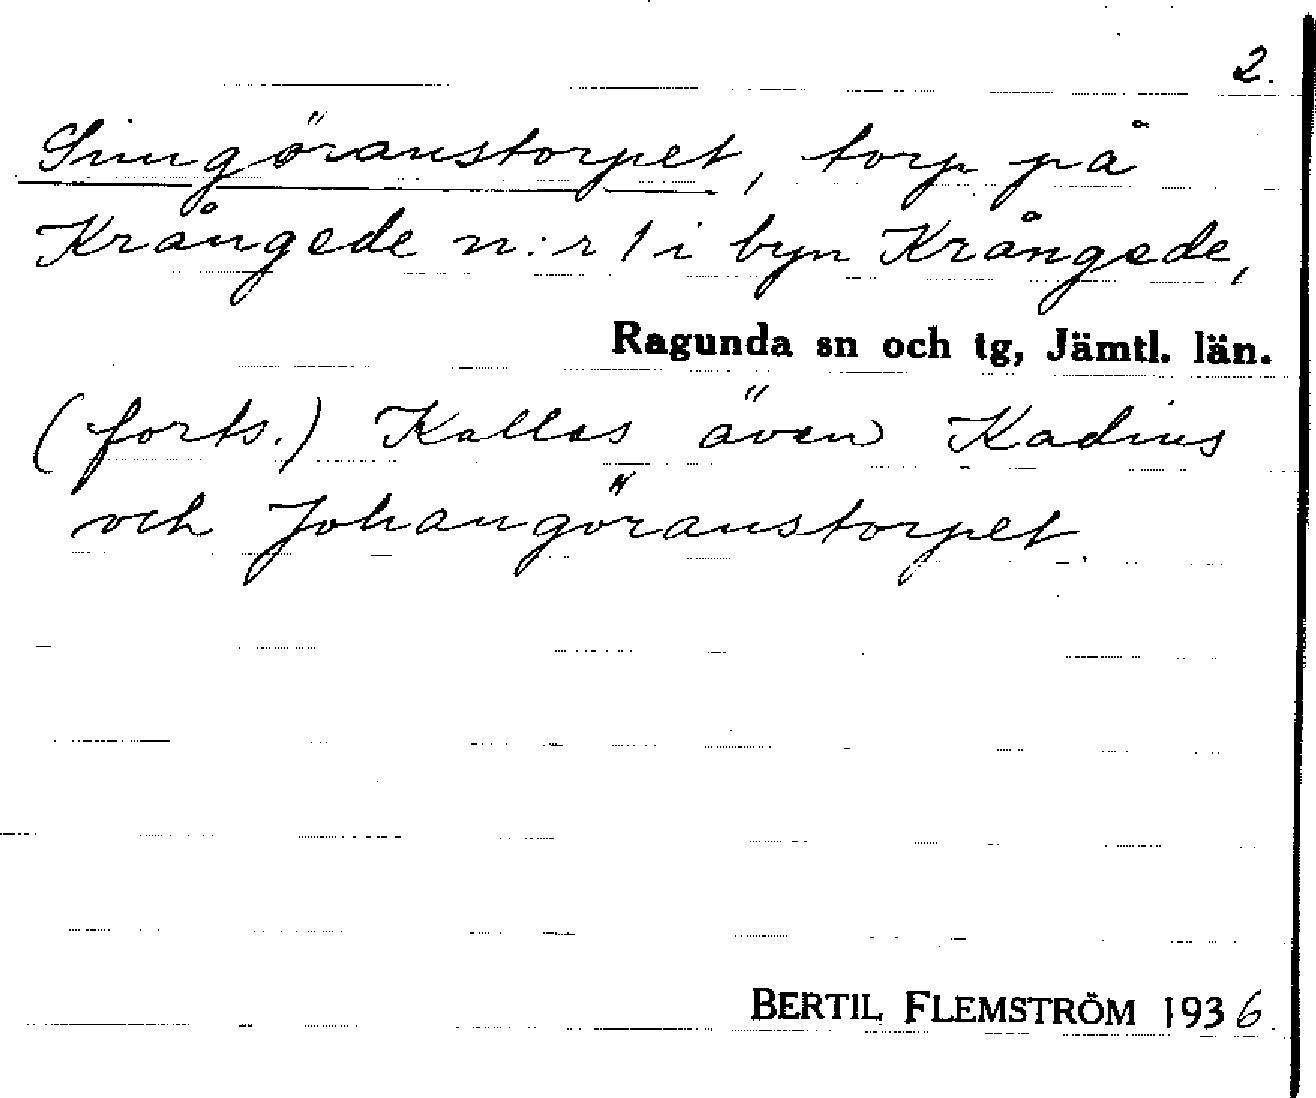 2.
Simgöranstorpet, torp på
Krångede n:r 1 i byn Krångede,
Ragunda sn och tg, Jämtl. län.
(forts.) Kallas även Kadins
och Johangöranstorpet.
BERTIL FLEMSTRÖM 1936.